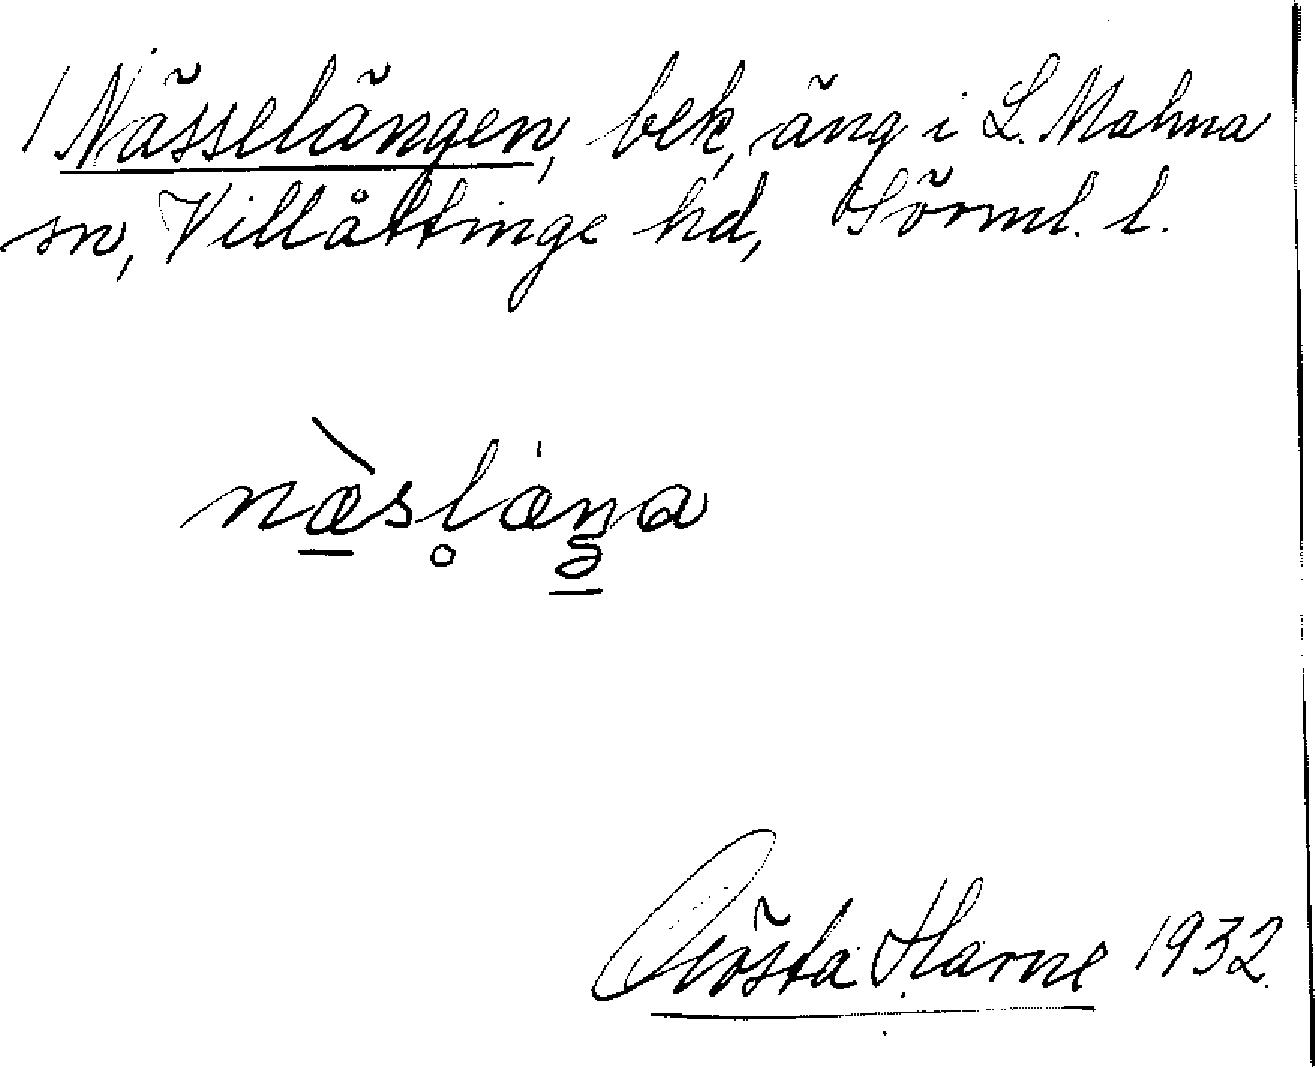 Nässelängen, bek, äng i L. Malma
sn, Villåttinge hd, Sörml. l.
næ̀sl̥æŋa
Gösta Harne 1932.